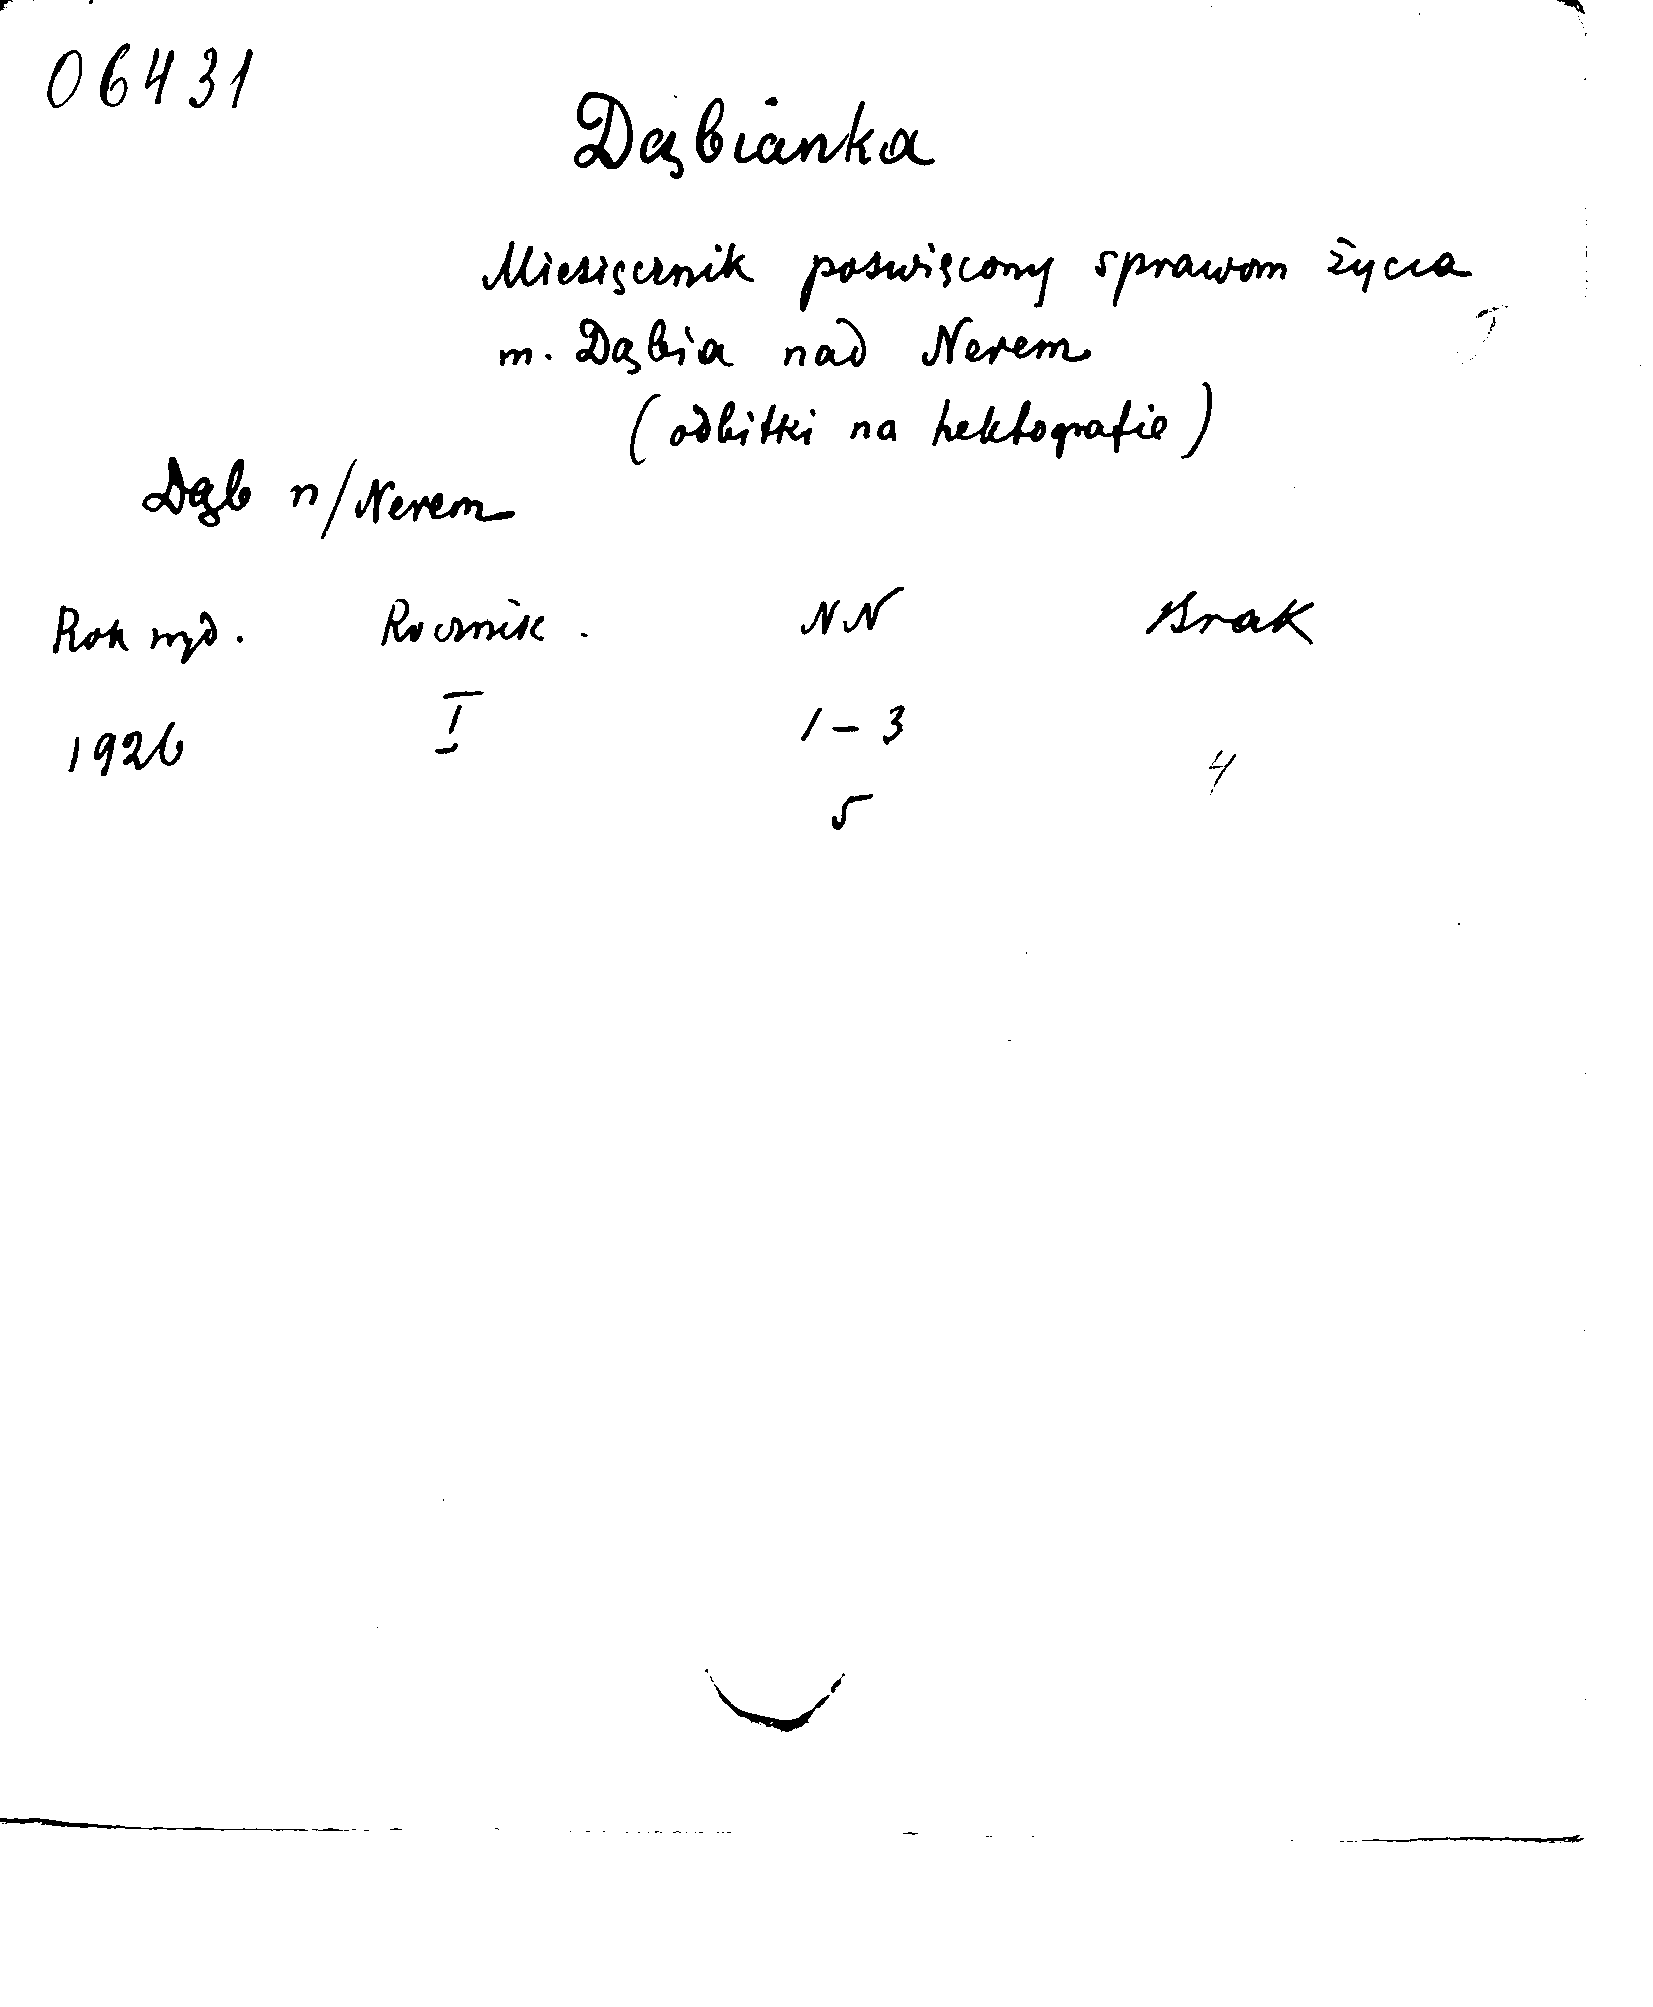 06431
Dąbianka
Miesięcznik poświęcony sprawom życia
m. Dąbia nad Nerem
(odbitki na hektografie)
Dąb n/Nerem
Rok wyd. Rocznik. NN Brak
1926 I 1-3
4
5